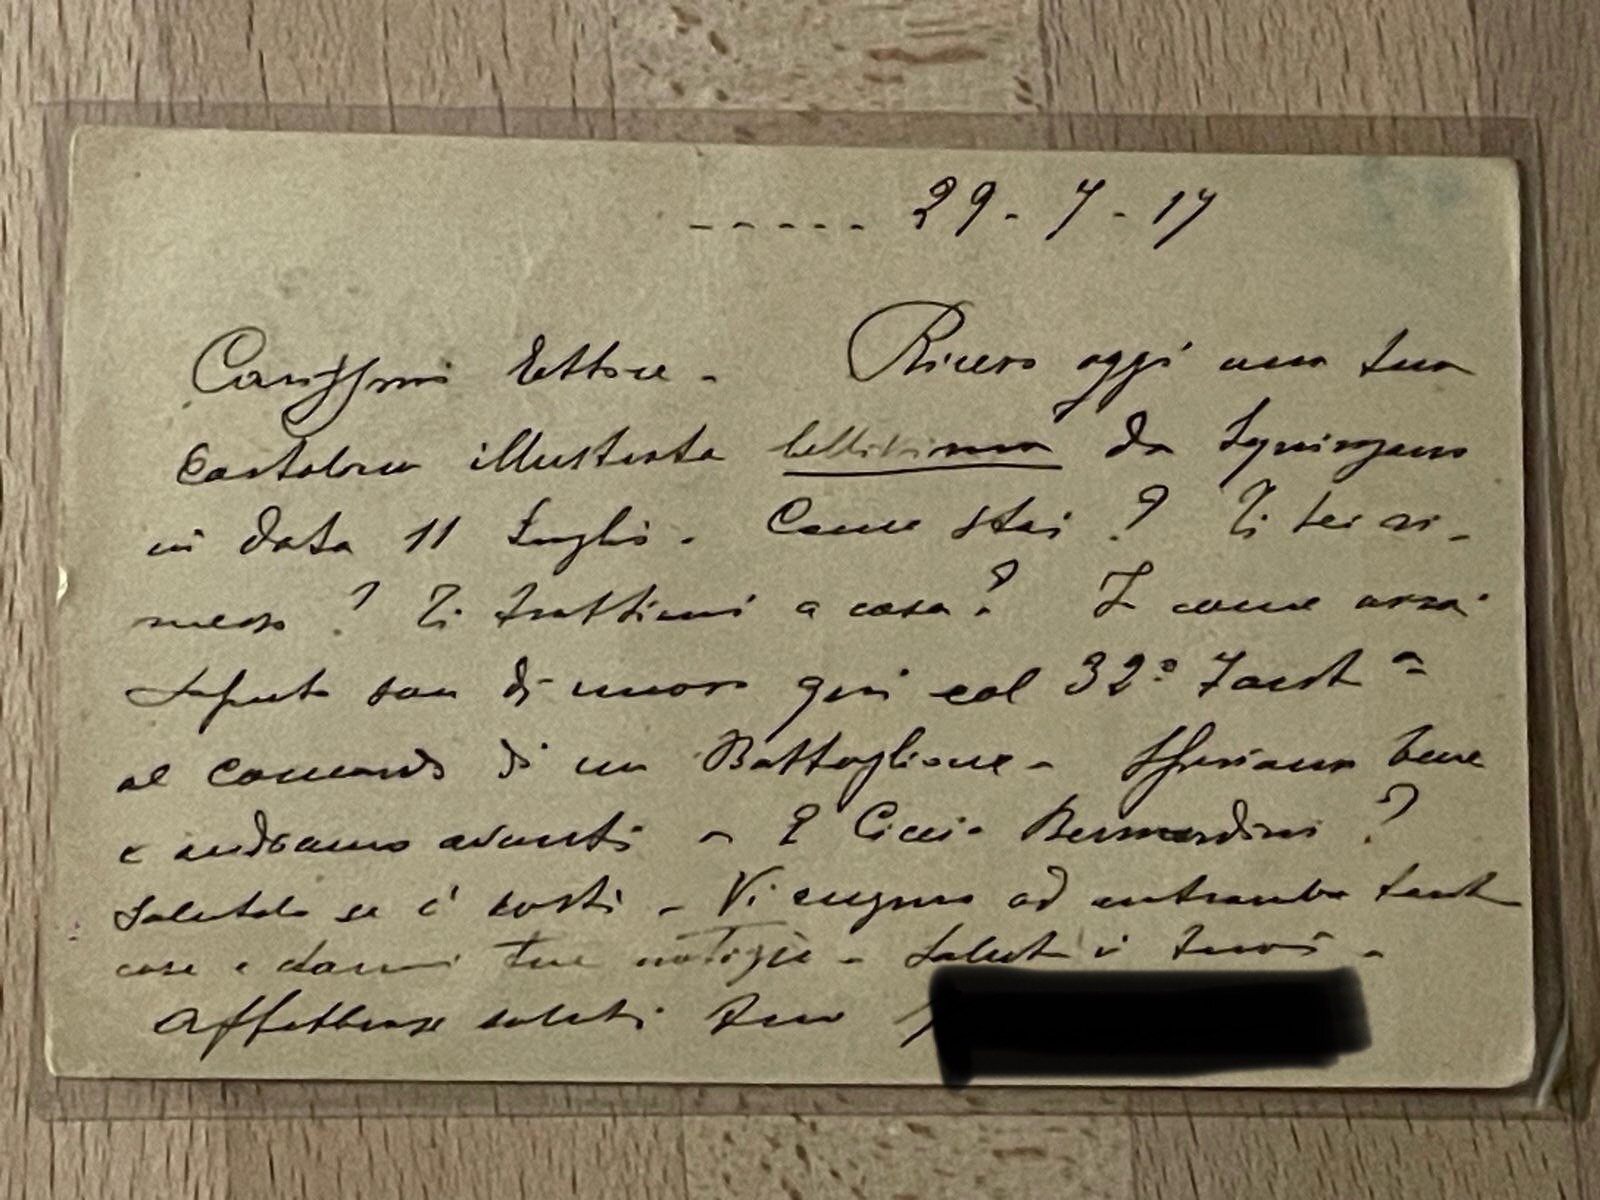 ----- 29-7-17
Carissimo Ettore - Ricevo oggi una tua
cartolina illustrata bellissima da Squinzano
in data 11 Luglio. Come stai? Ti sei ri-
messo? Ti trattieni a casa? Io come avrai
saputo son di nuovo qui col 32° Fant.a
al comando di un Battaglione - Speriamo bene
e andiamo avanti - E Ciccio Bernardini?
Salutalo se è costì - Vi auguro ad entrambi tante
cose e dammi tue notizie - Saluta i tuoi -
Affettuosi saluti tuo